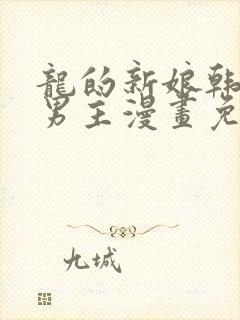 龍的新娘韩
男主漫畫免
九城